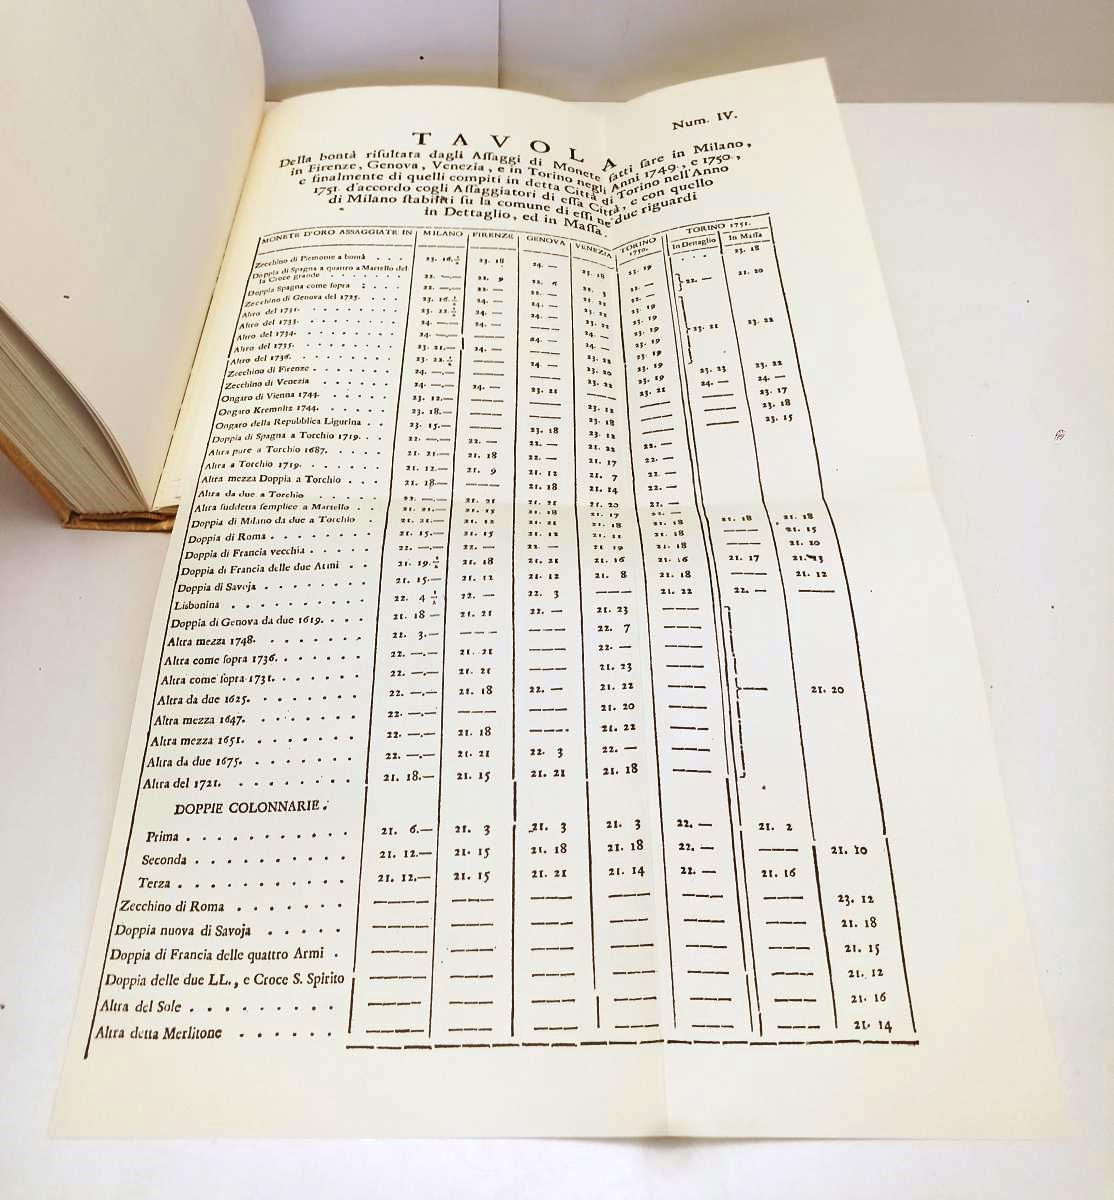 Num. IV.
TAVOLA
Della bontà risultata dagli Assaggi di Monete fatti fare in Milano,
in Firenze, Genova, Venezia, e in Torino negli Anni 1749, e 1750,
e finalmente di quelli compiti in detta Città di Torino nell'Anno
1751. d'accordo cogli Assaggiatori di essa Città, e con quello
di Milano stabiliti su la comune di essi ne' due riguardi
in Dettaglio, ed in Massa.
MONETE D'ORO ASSAGGIATE IN MILANO FIRENZE GENOVA VENEZIA TORINO 1750. TORINO 1751.
In Dettaglio In Massa
Zecchino di Piemonte a bontà . . 23. 16. 1/2 23. 18 24. — 23. 18 23. 19 . . . 23. 18
Doppia di Spagna a quattro a Martello del
la Croce grande . . . . . . . 22. —.— 21. 9 22. 6 22. 3 22. — 22. — 21. 20
Doppia Spagna come sopra
Zecchino di Genova del 1725. . . . .
Altro del 1731. . . . . . . . .
Altro del 1733. . . . . . . . .
Altro del 1734. . . . . . . . . 23. 21 23. 22
Altro del 1735. . . . . . . . .
Altro del 1736. . . . . . . . .
Zecchino di Firenze . . . . . . 24. —.— 23. 23 23. 22
Zecchino di Venezia . . . . . 24. —.— 24. — 24. —
Ongaro di Vienna 1744. . . . . . 23. 12.— 23. 17
Ongaro Kremnitz 1744. . . . . . 23. 18.— 23. 18
Ongaro della Repubblica Ligurina . . 23. 15.— 23. 15
Doppia di Spagna a Torchio 1719. . . 22. —.— 22. —
Altra pure a Torchio 1687. . . . . 21. 21.— 21. 18
Altra a Torchio 1719. . . . . . . 21. 12.— 21. 9
Altra mezza Doppia a Torchio . . . 21. 18.—
Altra da due a Torchio . . . . . 22. —.— 21. 21
Altra suddetta semplice a Martello . . 21. 21.— 21. 15
Doppia di Milano da due a Torchio . 21. 21.— 21. 12 21. 12 21. 18 21. 18 21. 18 21. 18
Doppia di Roma . . . . . . . . 21. 15.— 21. 15 21. 12 21. 11 21. 18 —— 21. 15
Doppia di Francia vecchia . . . . . 22. —.— 22. — 22. — 21 19 21. 18 —— 21. 20
Doppia di Francia delle due Armi . . 21. 19. 1/2 21. 18 21. 21 21. 16 21. 16 21. 17 21. 13
Doppia di Savoja . . . . . . . . 21. 15.— 21. 12 21. 12 21. 8 21. 18 —— 21. 12
Lisbonina . . . . . . . . . . 22. 4 1/2 22. — 22. 3 —— 21. 22 22. — ——
Doppia di Genova da due 1619. . . . 21. 18 — 21. 21 22. — 21. 23 ——
Altra mezza 1748. . . . . . . . 22. 3.— —— —— 22. 7 ——
Altra come sopra 1736. . . . . . . 22. —.— 21. 21 —— 22. — ——
Altra come sopra 1731. . . . . . . 22. —.— 21. 21 —— 21. 23 ——
Altra da due 1625. . . . . . . . 22. —.— 21. 18 22. — 21. 22 —— —— 21. 20
Altra mezza 1647. . . . . . . . 22. —.— —— —— 21. 20 ——
Altra mezza 1651. . . . . . . . 22. —.— 21. 18 —— 21. 22 ——
Altra da due 1675. . . . . . . . 22. —.— 21. 21 22. 3 22. — ——
Altra del 1721. . . . . . . . . 21. 18.— 21. 15 21. 21 21. 18 ——
DOPPIE COLONNARIE.
Prima . . . . . . . . . . . 21. 6.— 21. 3 21. 3 21. 3 22. — 21. 2
Seconda . . . . . . . . . . 21. 12.— 21. 15 21. 18 21. 18 22. — —— 21. 10
Terza . . . . . . . . . . . 21. 12.— 21. 15 21. 21 21. 14 22. — 21. 16
Zecchino di Roma . . . . . . . —— —— —— —— —— —— 23. 12
Doppia nuova di Savoja . . . . . —— —— —— —— —— —— 21. 18
Doppia di Francia delle quattro Armi . —— —— —— —— —— —— 21. 15
Doppia delle due LL., e Croce S. Spirito —— —— —— —— —— —— 21. 12
Altra del Sole . . . . . . . . . —— —— —— —— —— —— 21. 16
Altra detta Merlitone . . . . . . —— —— —— —— —— —— 21. 14